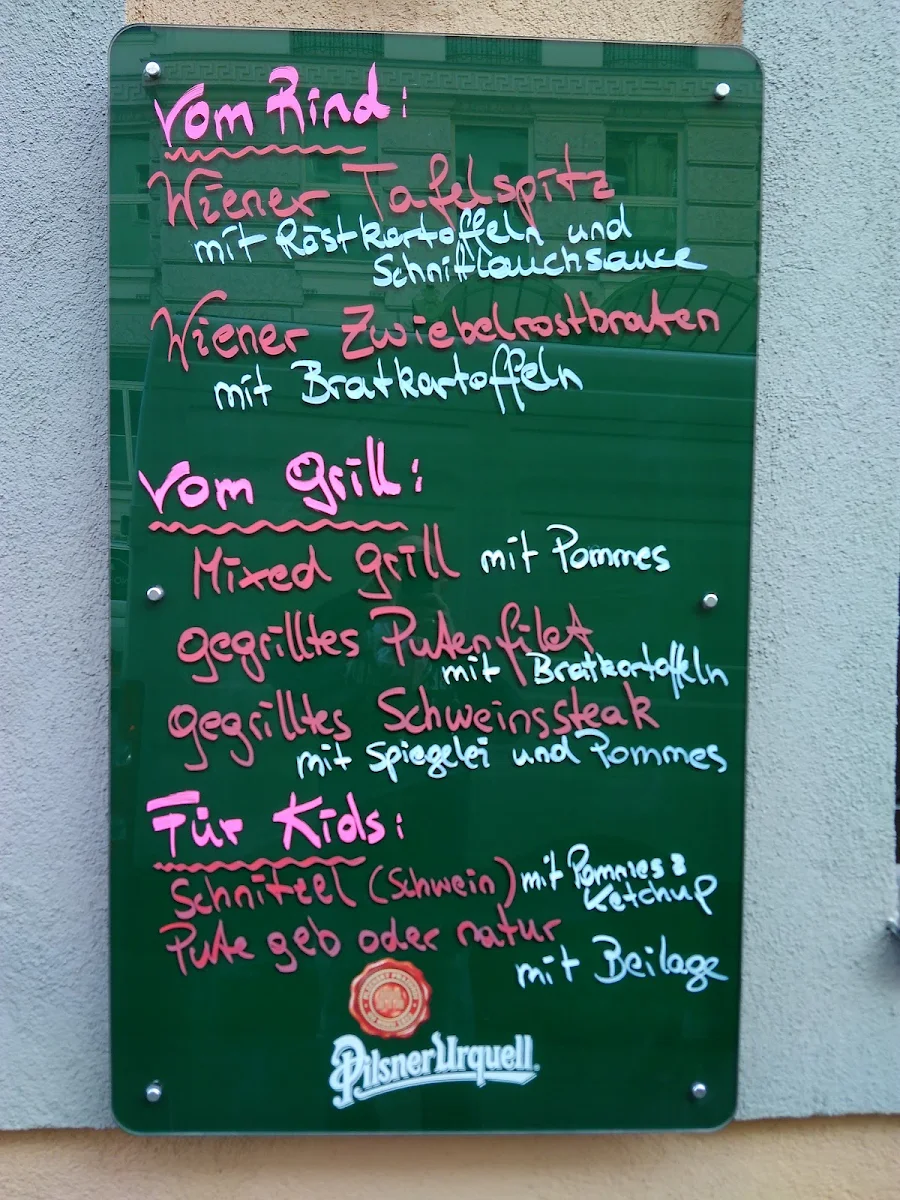 Vom Rind:
Wiener Tafelspitz
mit Röstkartoffeln und
Schnittlauchsauce
Wiener Zwiebelrostbraten
mit Bratkartoffeln
Vom Grill:
Mixed Grill mit Pommes
gegrilltes Putenfilet
mit Bratkartoffeln
gegrilltes Schweinssteak
mit Spiegelei und Pommes
Für Kids:
Schnitzel (Schwein) mit Pommes &
Ketchup
Pute geb oder natur
mit Beilage
Pilsner Urquell